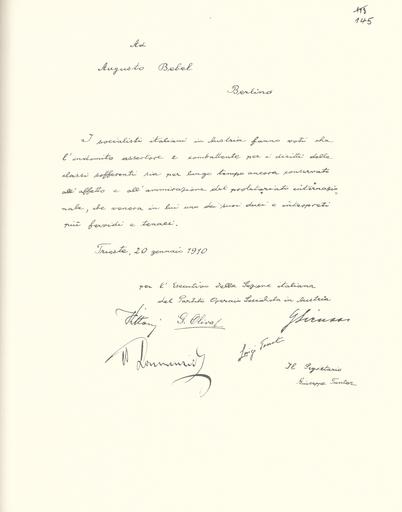 145
Ad
Augusto Bebel
Berlino
I socialisti italiani in Austria fanno voti che
l'indomito assertore e combattente per i diritti delle
classi sofferenti sia per lungo tempo ancora conservato
all'affetto e all'ammirazione del proletariato internazio
nale, che venera in lui uno dei suoi duci e interpreti
più fervidi e tenaci.
Trieste, 20 gennaio 1910
per l'Esecutivo della Sezione italiana
del Partito Operaio Socialista in Austria
G. Oliva
Il Segretario
Giuseppe